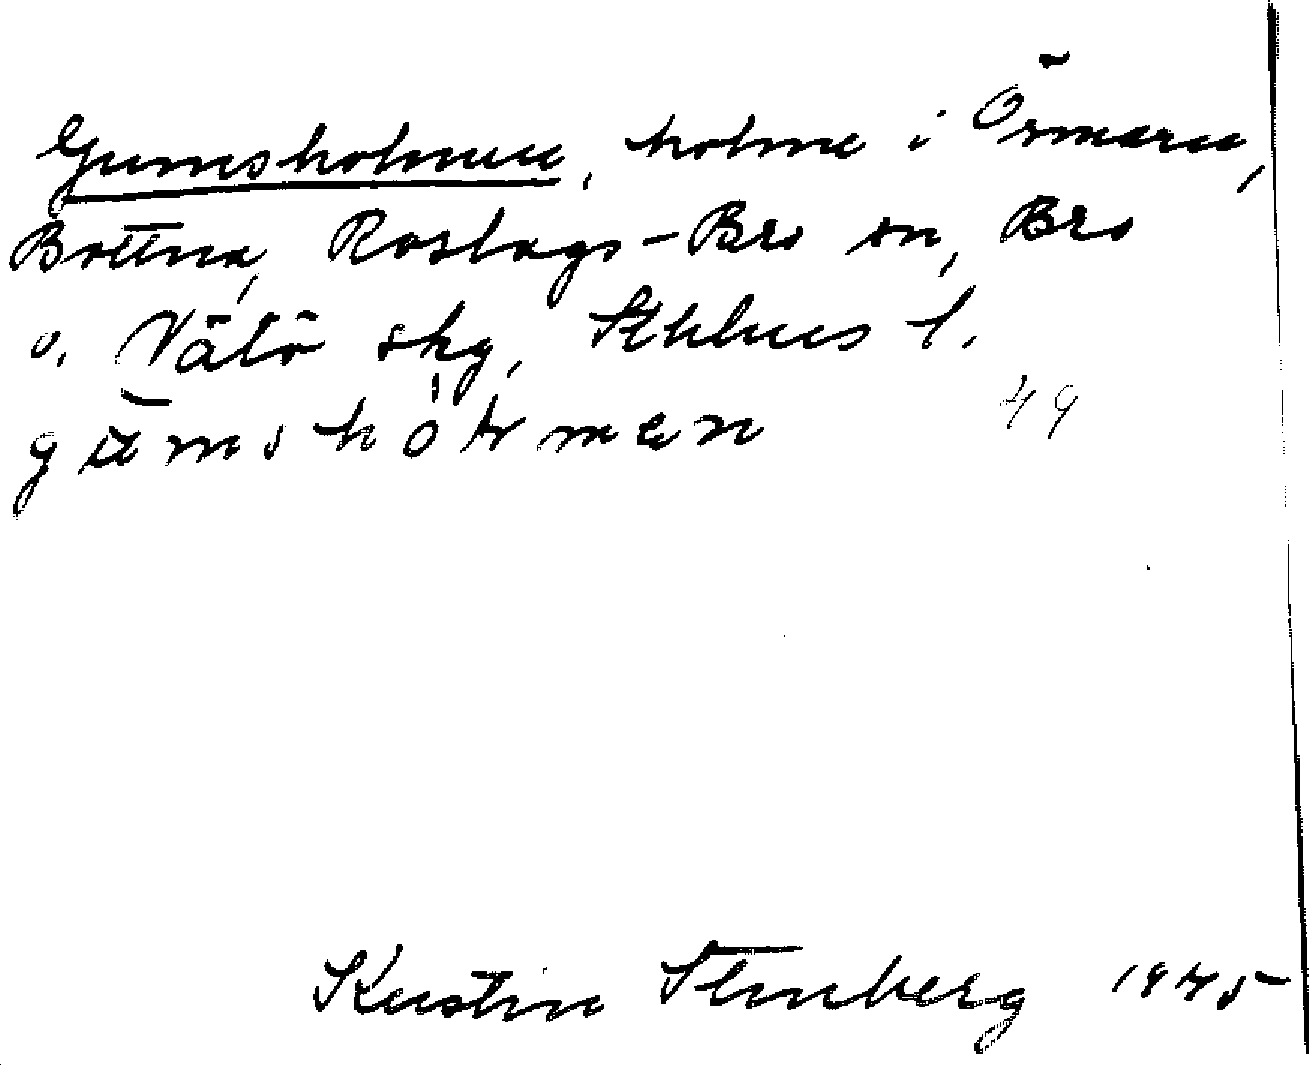 Gumsholmen, holme i Örmaren,
Bottna, Roslags-Bro sn, Bro
o. Vätö skg, Sthlms l.
49
Kerstin Stenberg 1945